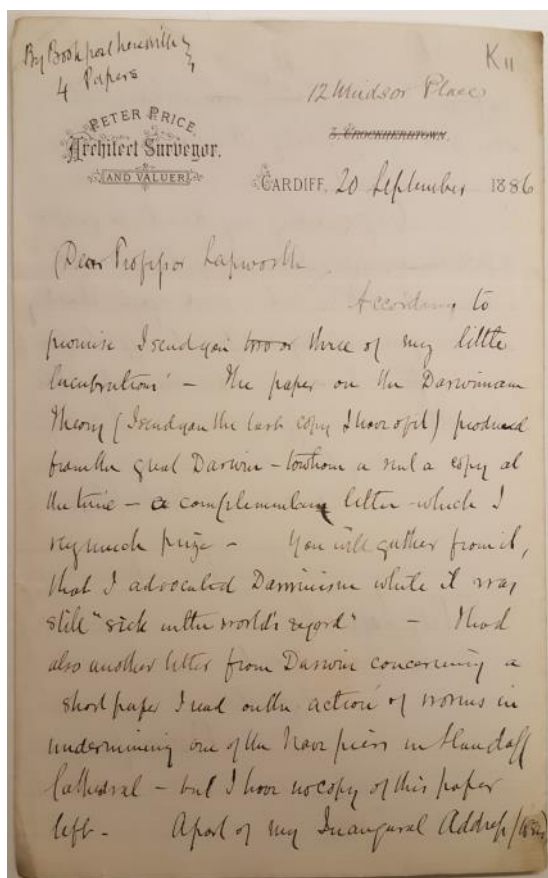 By Bookpost herewith
4 Papers
K11
PETER PRICE,
Architect Surveyor.
AND VALUER
12 Windsor Place
3, CROCKHERBTOWN,
CARDIFF, 20 September 1886
Dear Professor Lapworth
According to
promise I send you two or three of my little
lucubrations' – The paper on the Darwinnian
Theory (I send you the last copy I have of it) produced
from the great Darwin – to whom a sent a copy at
the time – a complementary letter – which I
very much prize – You will gather from it,
that I advocated Darwinism while it was
still "sick in the world's regard" – I had
also another letter from Darwin concerning a
short paper I read on the action of worms in
undermining one of the Nave piers in Llandaff
Cathedral – but I have no copy of this paper
left – A part of my Inaugural Address